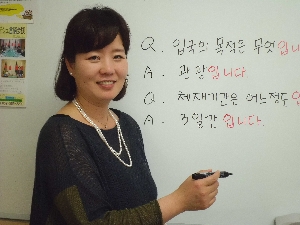 Q. 입국의 목적은 무엇입니
A. 관광입니다.
Q. 체재기간은 어느정도
A. 3일간입니다.